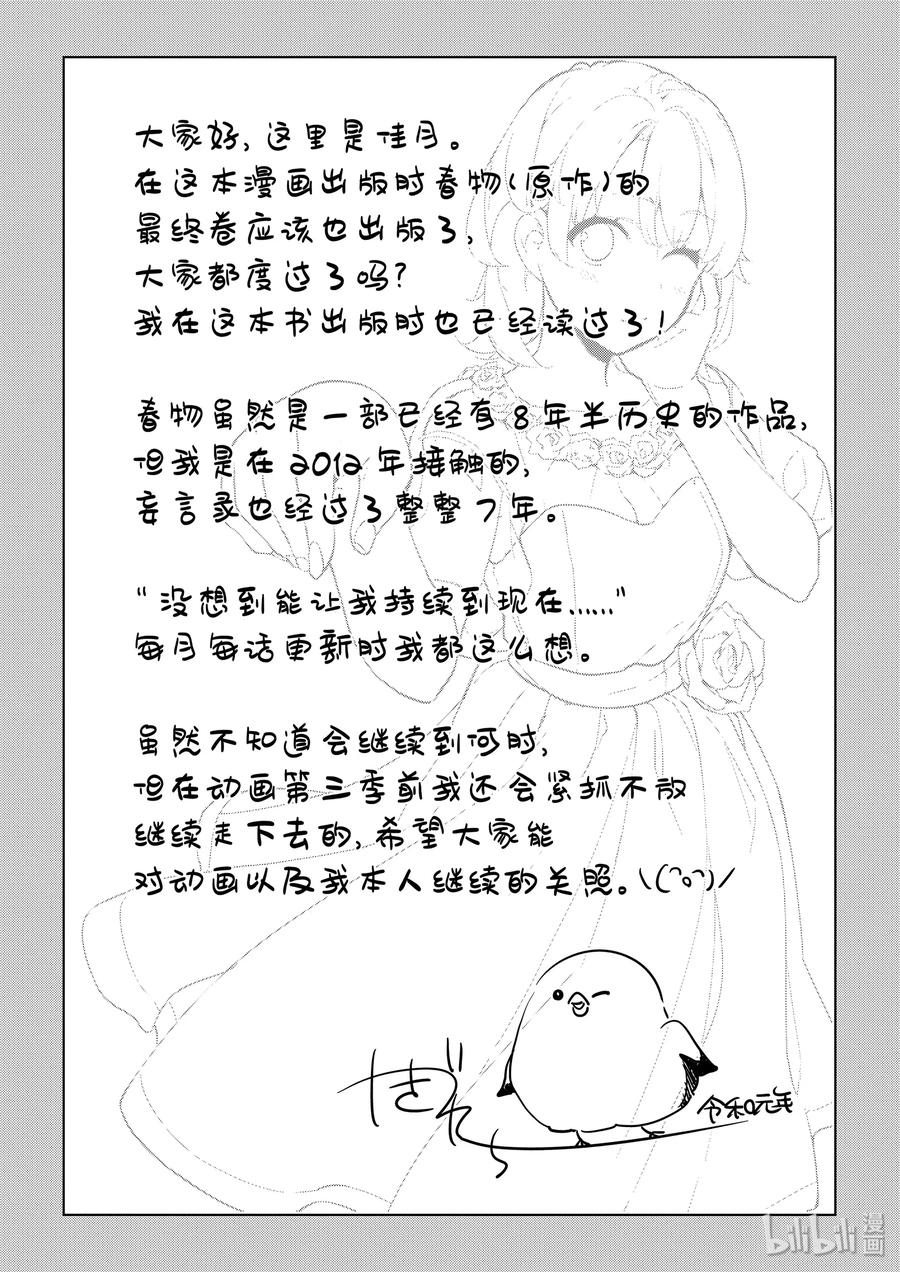 大家好,这里是佳月。
在这本漫画出版时春物(原作)的
最终卷应该也出版了,
大家都度过了吗?
我在这本书出版时也已经读过了!
春物虽然是一部已经有8年半历史的作品,
但我是在2012年接触的,
妄言录也经过了整整7年。
"没想到能让我持续到现在......"
每月每话更新时我都这么想。
虽然不知道会继续到何时,
但在动画第三季前我还会紧抓不放
继续走下去的,希望大家能
对动画以及我本人继续的关照。\(^o^)/
令和元年
bilibili漫画